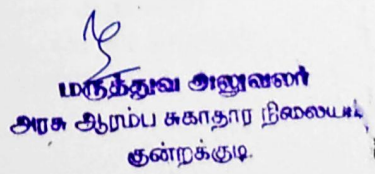 மருத்துவ அலுவலர்
அரசு ஆரம்ப சுகாதார நிலையம்,
குன்றக்குடி.